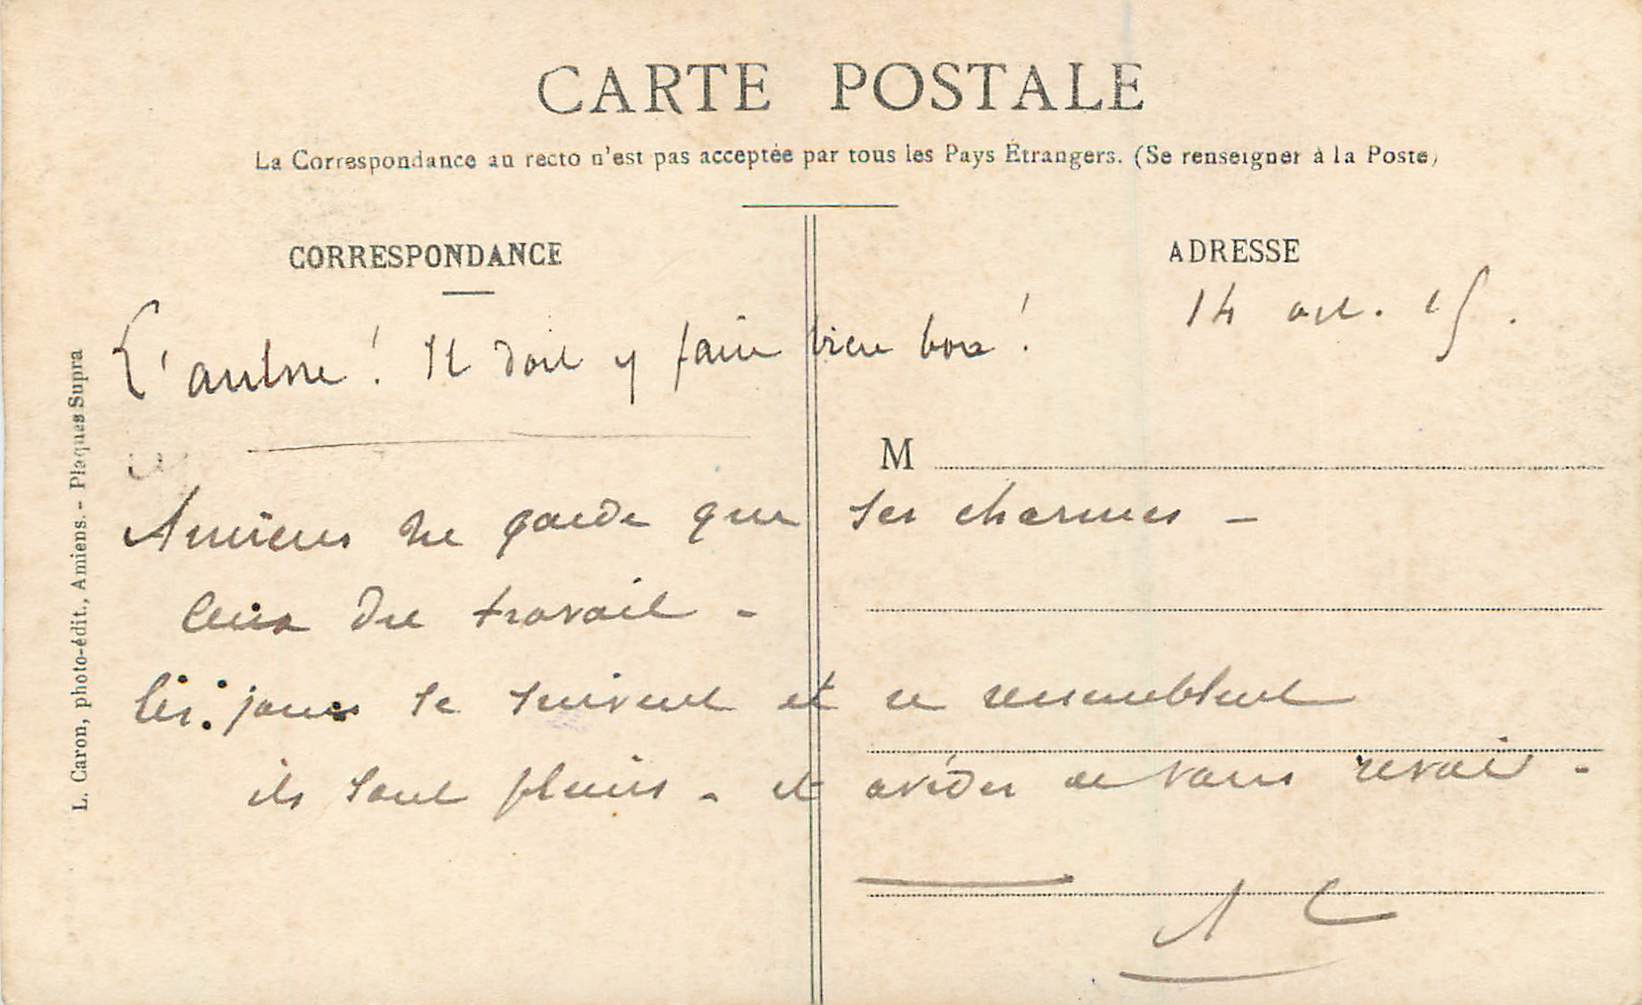 CARTE POSTALE
La Correspondance au recto n'est pas acceptée par tous les Pays Étrangers. (Se renseigner à la Poste)
CORRESPONDANCE
ADRESSE
14 oct. 15.
L'autre! Il doit y faire bien bon!
M
Amiens ne garde que ses charmes -
Ceux du travail -
les jours se suivent et se ressemblent
ils sont pleins - et avides de vous revoir -
A C
L. Caron, photo-édit., Amiens. - Plaques Supra